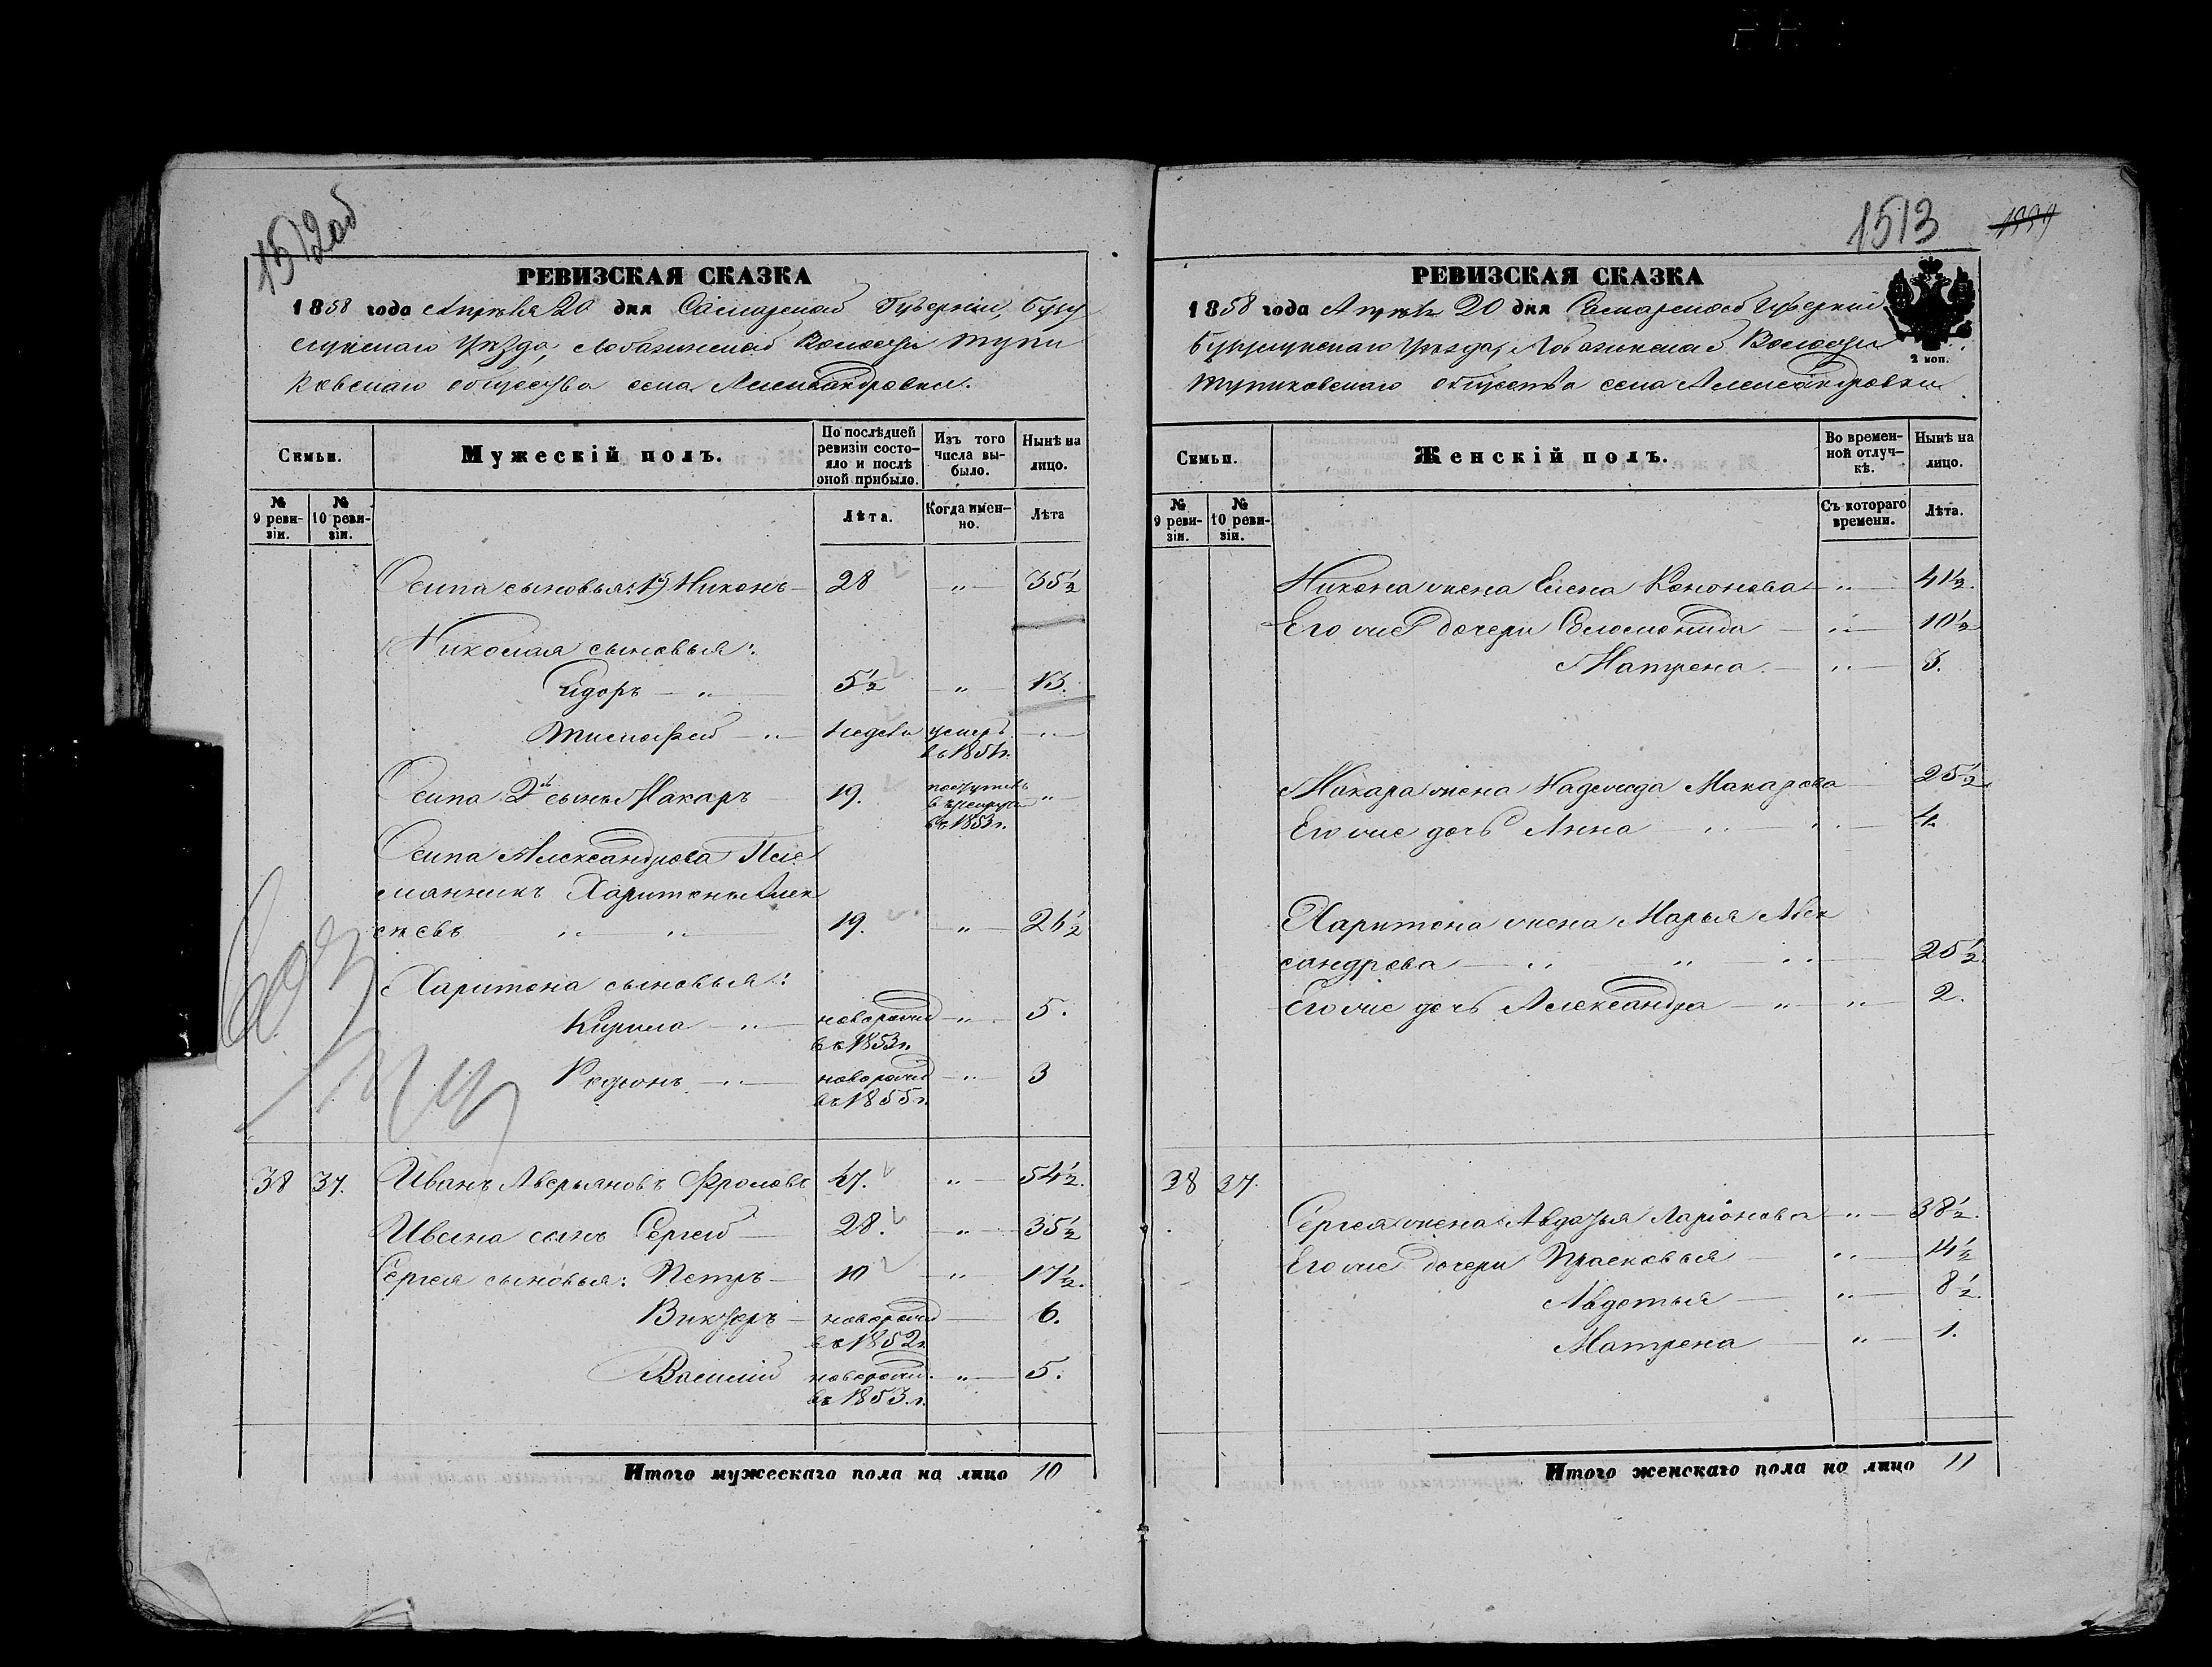 1512об
РЕВИЗСКАЯ СКАЗКА
1858 года Апреля 20 дня Самарской Губернии, Бугу
русланскаго Уѣзда, Лобазинской Волости Тупи
ковскаго общества села Александровки.
Семьи.
Мужескій полъ.
По послѣдней ревизіи состояло и послѣ оной прибыло.
Изъ того числа выбыло.
Нынѣ на лицо.
№ 9 ревизіи.
№ 10 ревизіи.
Лѣта.
Когда именно.
Лѣта
Осипа сыновья: 1й Никонъ 28 " 35½
Николая сыновья:
Егоръ " 5½ " 13.
Тимофей " умеръ "
въ 1851г.
Осипа 2й сынъ Макаръ 19. поступилъ
в рекруты "
въ 1853г.
Осипа Александрова Пле
манникъ Харитонъ Алек
сѣевъ " " 19. " 26½
Харитона сыновья:
Кирила " новорожд " 5.
въ 1853г.
Родіонъ " новорожд " 3
въ 1855г.
38 37. Иванъ Аверьяновъ Фроловъ 47. " 54½.
Ивана сынъ Сергей 28. " 35½
Сергея сыновья: Петръ 10 " 17½.
Викторъ новорожд 6.
въ 1852г
Василий новорожд. " 5.
въ 1853.г.
Итого мужескаго пола на лицо 10
1513 1339
РЕВИЗСКАЯ СКАЗКА
1858 года Апреля 20 дня Самарской Губерніи
Бугурусланскаго Уѣзда, Лобазинской Волости
Тупиковскаго общества села Александровки
2 коп.
Семьи.
Женскій полъ.
Во временной отлучкѣ.
Нынѣ на лицо.
№ 9 ревизіи.
№ 10 ревизіи.
Съ котораго времени.
Лѣта.
Никона жена Елена Кононова " 41½.
Его же дочери Соломонида " 10½
Матрена " 3.
Макара жена Надежда Макарова 25½
Его же дочь Анна " " 4.
Харитона жена Марья Алек
сандрова " " " 25½.
Его же дочь Александра " " 2.
38 37.
Сергея жена Авдотья Ларіонова " 38½.
Его же дочери Прасковья " 14½
Авдотья " 8½.
Матрена " 1.
Итого женскаго пола на лицо 11